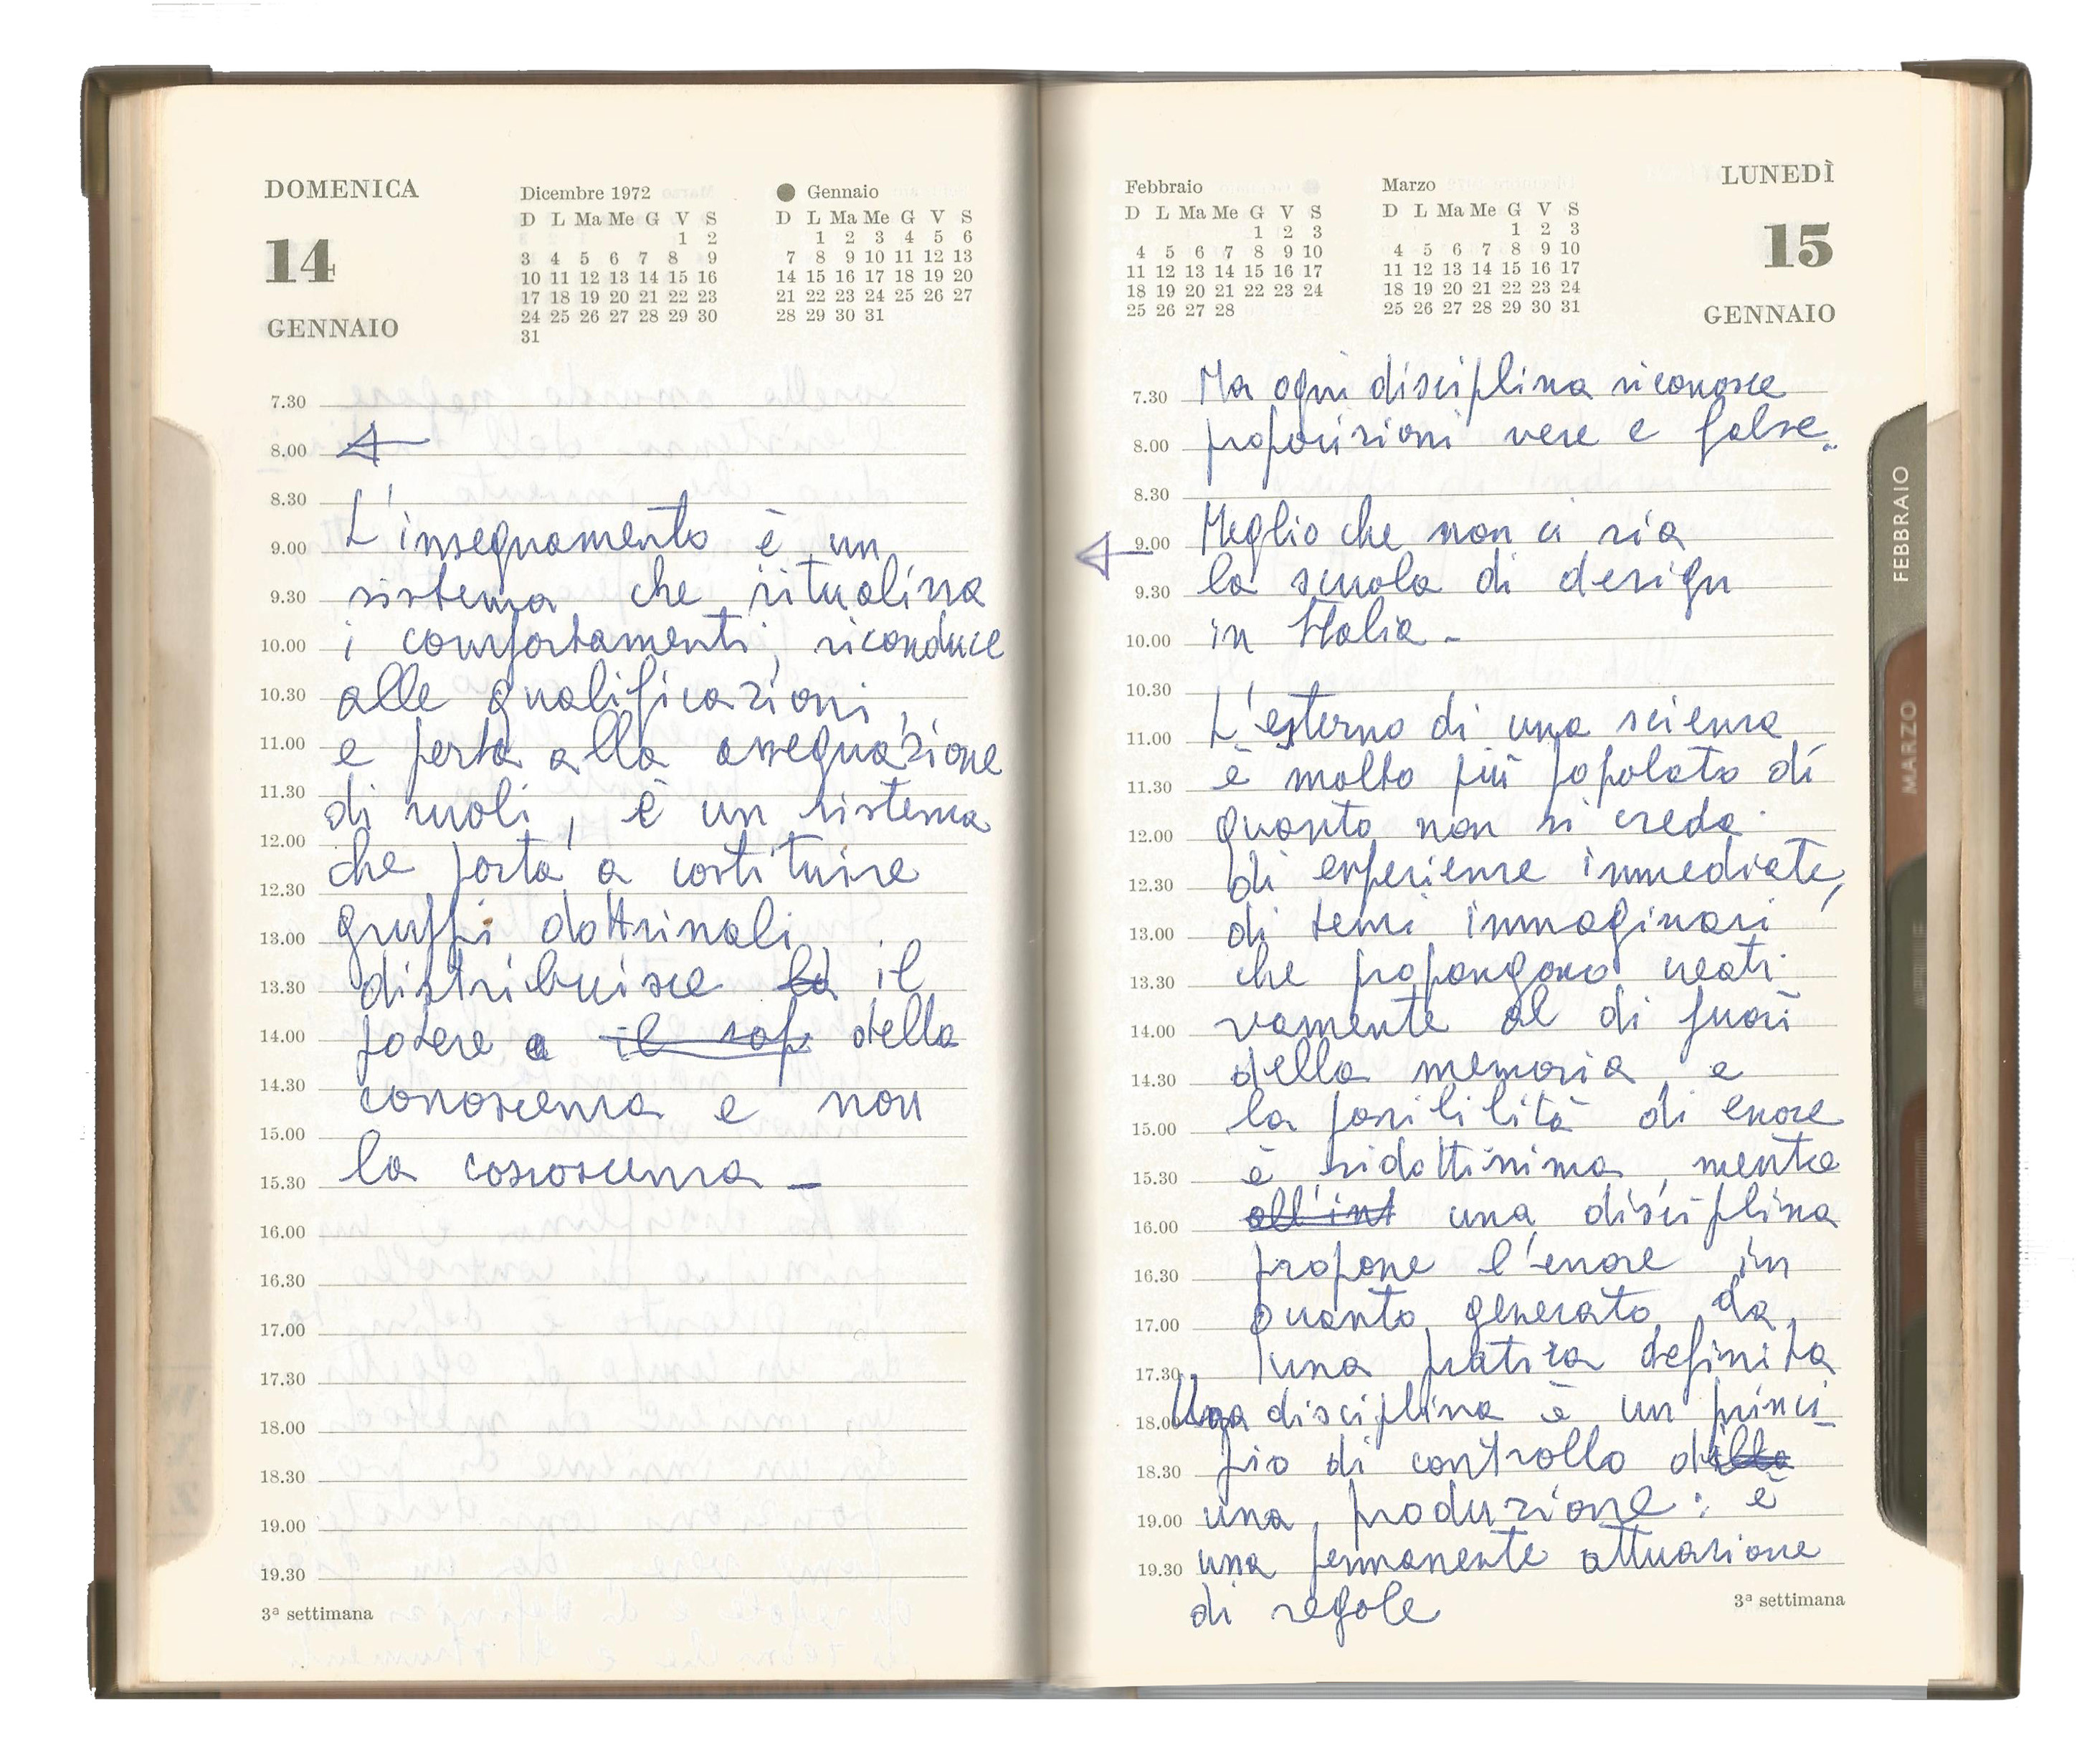 DOMENICA
14
GENNAIO
Dicembre 1972
D L Ma Me G V S
1 2
3 4 5 6 7 8 9
10 11 12 13 14 15 16
17 18 19 20 21 22 23
24 25 26 27 28 29 30
31
Gennaio
D L Ma Me G V S
1 2 3 4 5 6
7 8 9 10 11 12 13
14 15 16 17 18 19 20
21 22 23 24 25 26 27
28 29 30 31
7.30
8.00
8.30
9.00 L'insegnamento è un
9.30 sistema che ritualizza
10.00 i comportamenti, riconduce
10.30 alle qualificazioni,
11.00 e porta alla assegnazione
11.30 di ruoli, è un sistema
12.00 che porta a costituire
12.30 gruppi dottrinali
13.00 distribuisce la il
13.30 potere e il sap della
14.00 conoscenza e non
14.30 la conoscenza -
15.00
15.30
16.00
16.30
17.00
17.30
18.00
18.30
19.00
19.30
3ª settimana
Febbraio
D L Ma Me G V S
1 2 3
4 5 6 7 8 9 10
11 12 13 14 15 16 17
18 19 20 21 22 23 24
25 26 27 28
Marzo
D L Ma Me G V S
1 2 3
4 5 6 7 8 9 10
11 12 13 14 15 16 17
18 19 20 21 22 23 24
25 26 27 28 29 30 31
LUNEDÌ
15
GENNAIO
7.30 Ma ogni disciplina riconosce
8.00 proposizioni vere e false.
8.30
9.00 Meglio che non ci sia
9.30 la scuola di design
10.00 in Italia -
10.30
11.00 L'esterno di una scienza
11.30 è molto più popolato di
12.00 quanto non si creda.
12.30 di esperienze immediate,
13.00 di temi immaginari
13.30 che propongono creati
14.00 vamente al di fuori
14.30 della memoria e
15.00 la possibilità di errore
15.30 è ridottissima, mentre
16.00 all'int una disciplina
16.30 propone l'errore in
17.00 quanto generato da
17.30 una pratica definita
18.00 Una disciplina è un princi_
18.30 pio di controllo della
19.00 una produzione: è
19.30 una permanente attuazione
di regole
3ª settimana
FEBBRAIO
MARZO